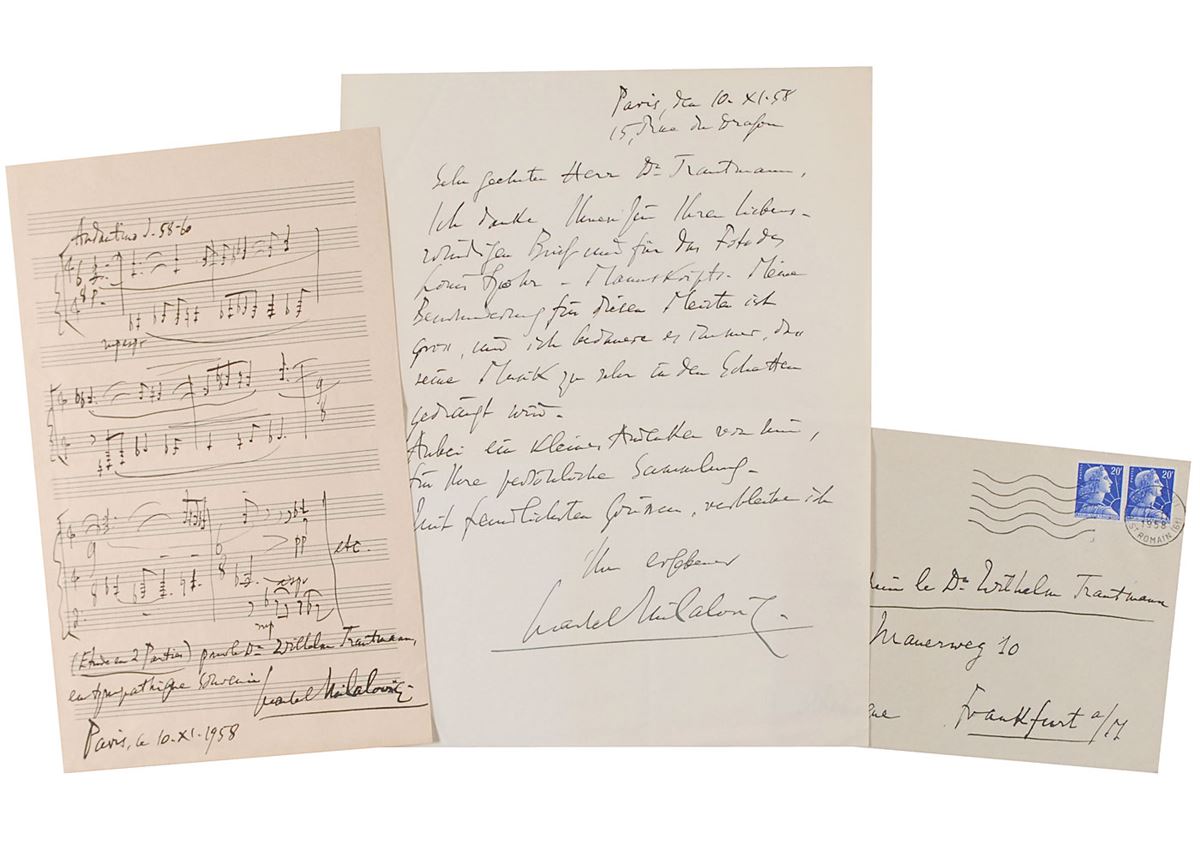 Andantino ♩= 58-60
mp espr
etc.
pp
espr
mp
(Etude en 2 Parties) pour le Dr Wilhelm Trautmann,
en sympathique souvenir
Marcel Mihalovici
Paris, le 10-XI-1958
Paris, den 10-XI-58
15, Rue du Dragon
Sehr geehrter Herr Dr Trautmann,
Ich danke Ihnen für Ihren liebens-
würdigen Brief und für das Foto des
Louis Spohr - Manuskripts. Meine
Bewunderung für diesen Meister ist
gross, und ich bedauere es immer, dass
seine Musik zu sehr in den Schatten
gedrängt wird.
Anbei ein kleines Andenken von mir,
für Ihre persönliche Sammlung.
Mit freundlichsten Grüssen, verbleibe ich
Ihr ergebener
Marcel Mihalovici
20F
20F
1958
ROMAIN
le Dr Wilhelm Trautmann
Mauerweg 10
Frankfurt a/M